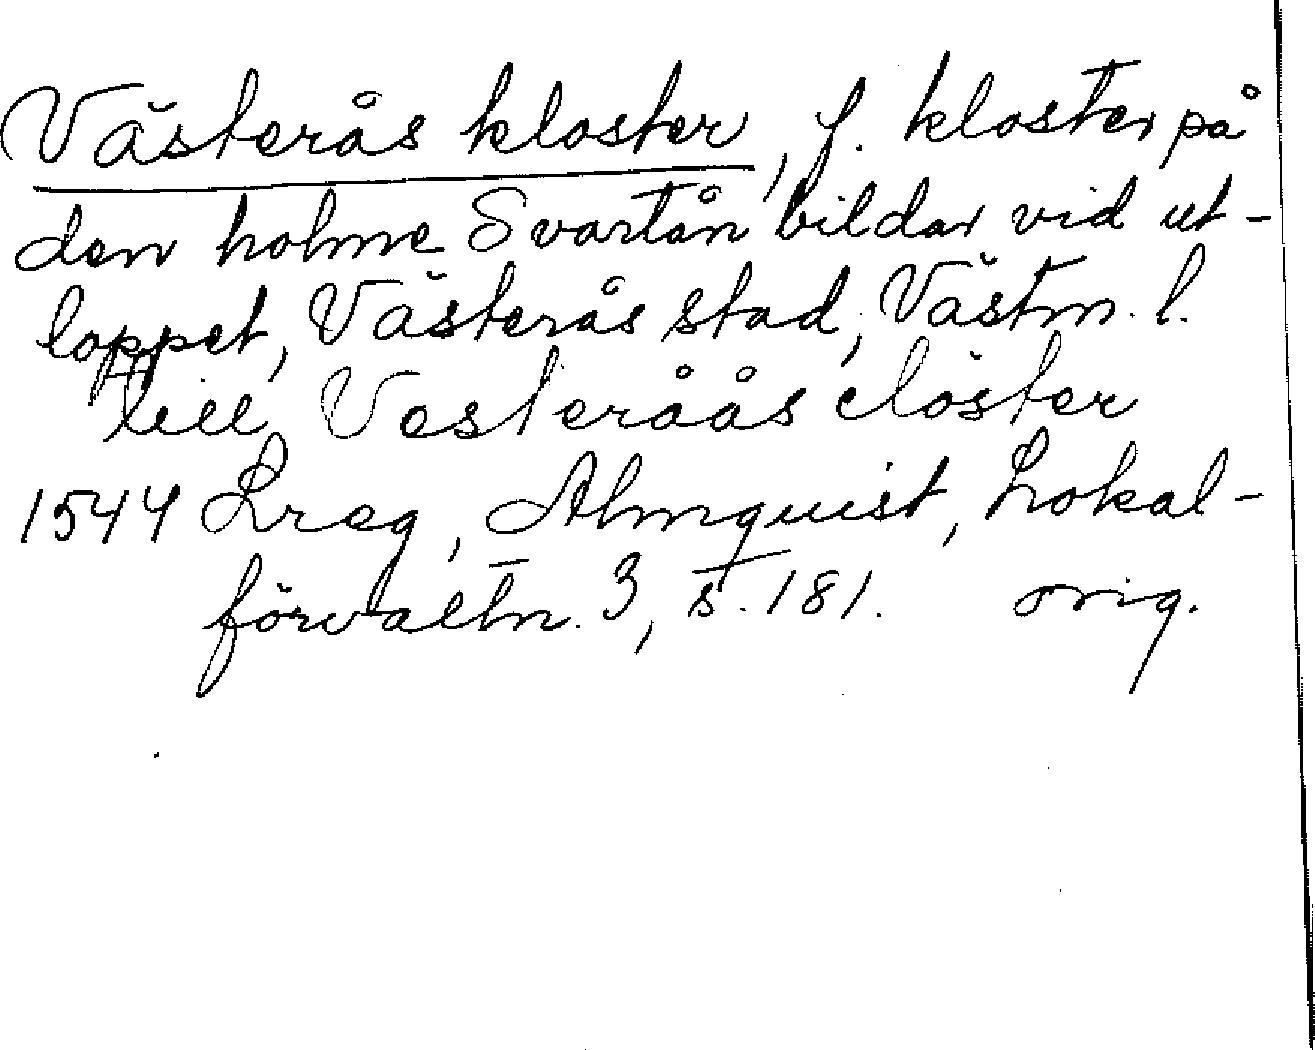 Västerås kloster, f. kloster på
den holme Svartån bildar vid ut-
loppet, Västerås stad, Västm. l.
till Vesteråås clöster
1544 Lreg, Almquist, Lokal-
förvaltn. 3, s. 181. orig.